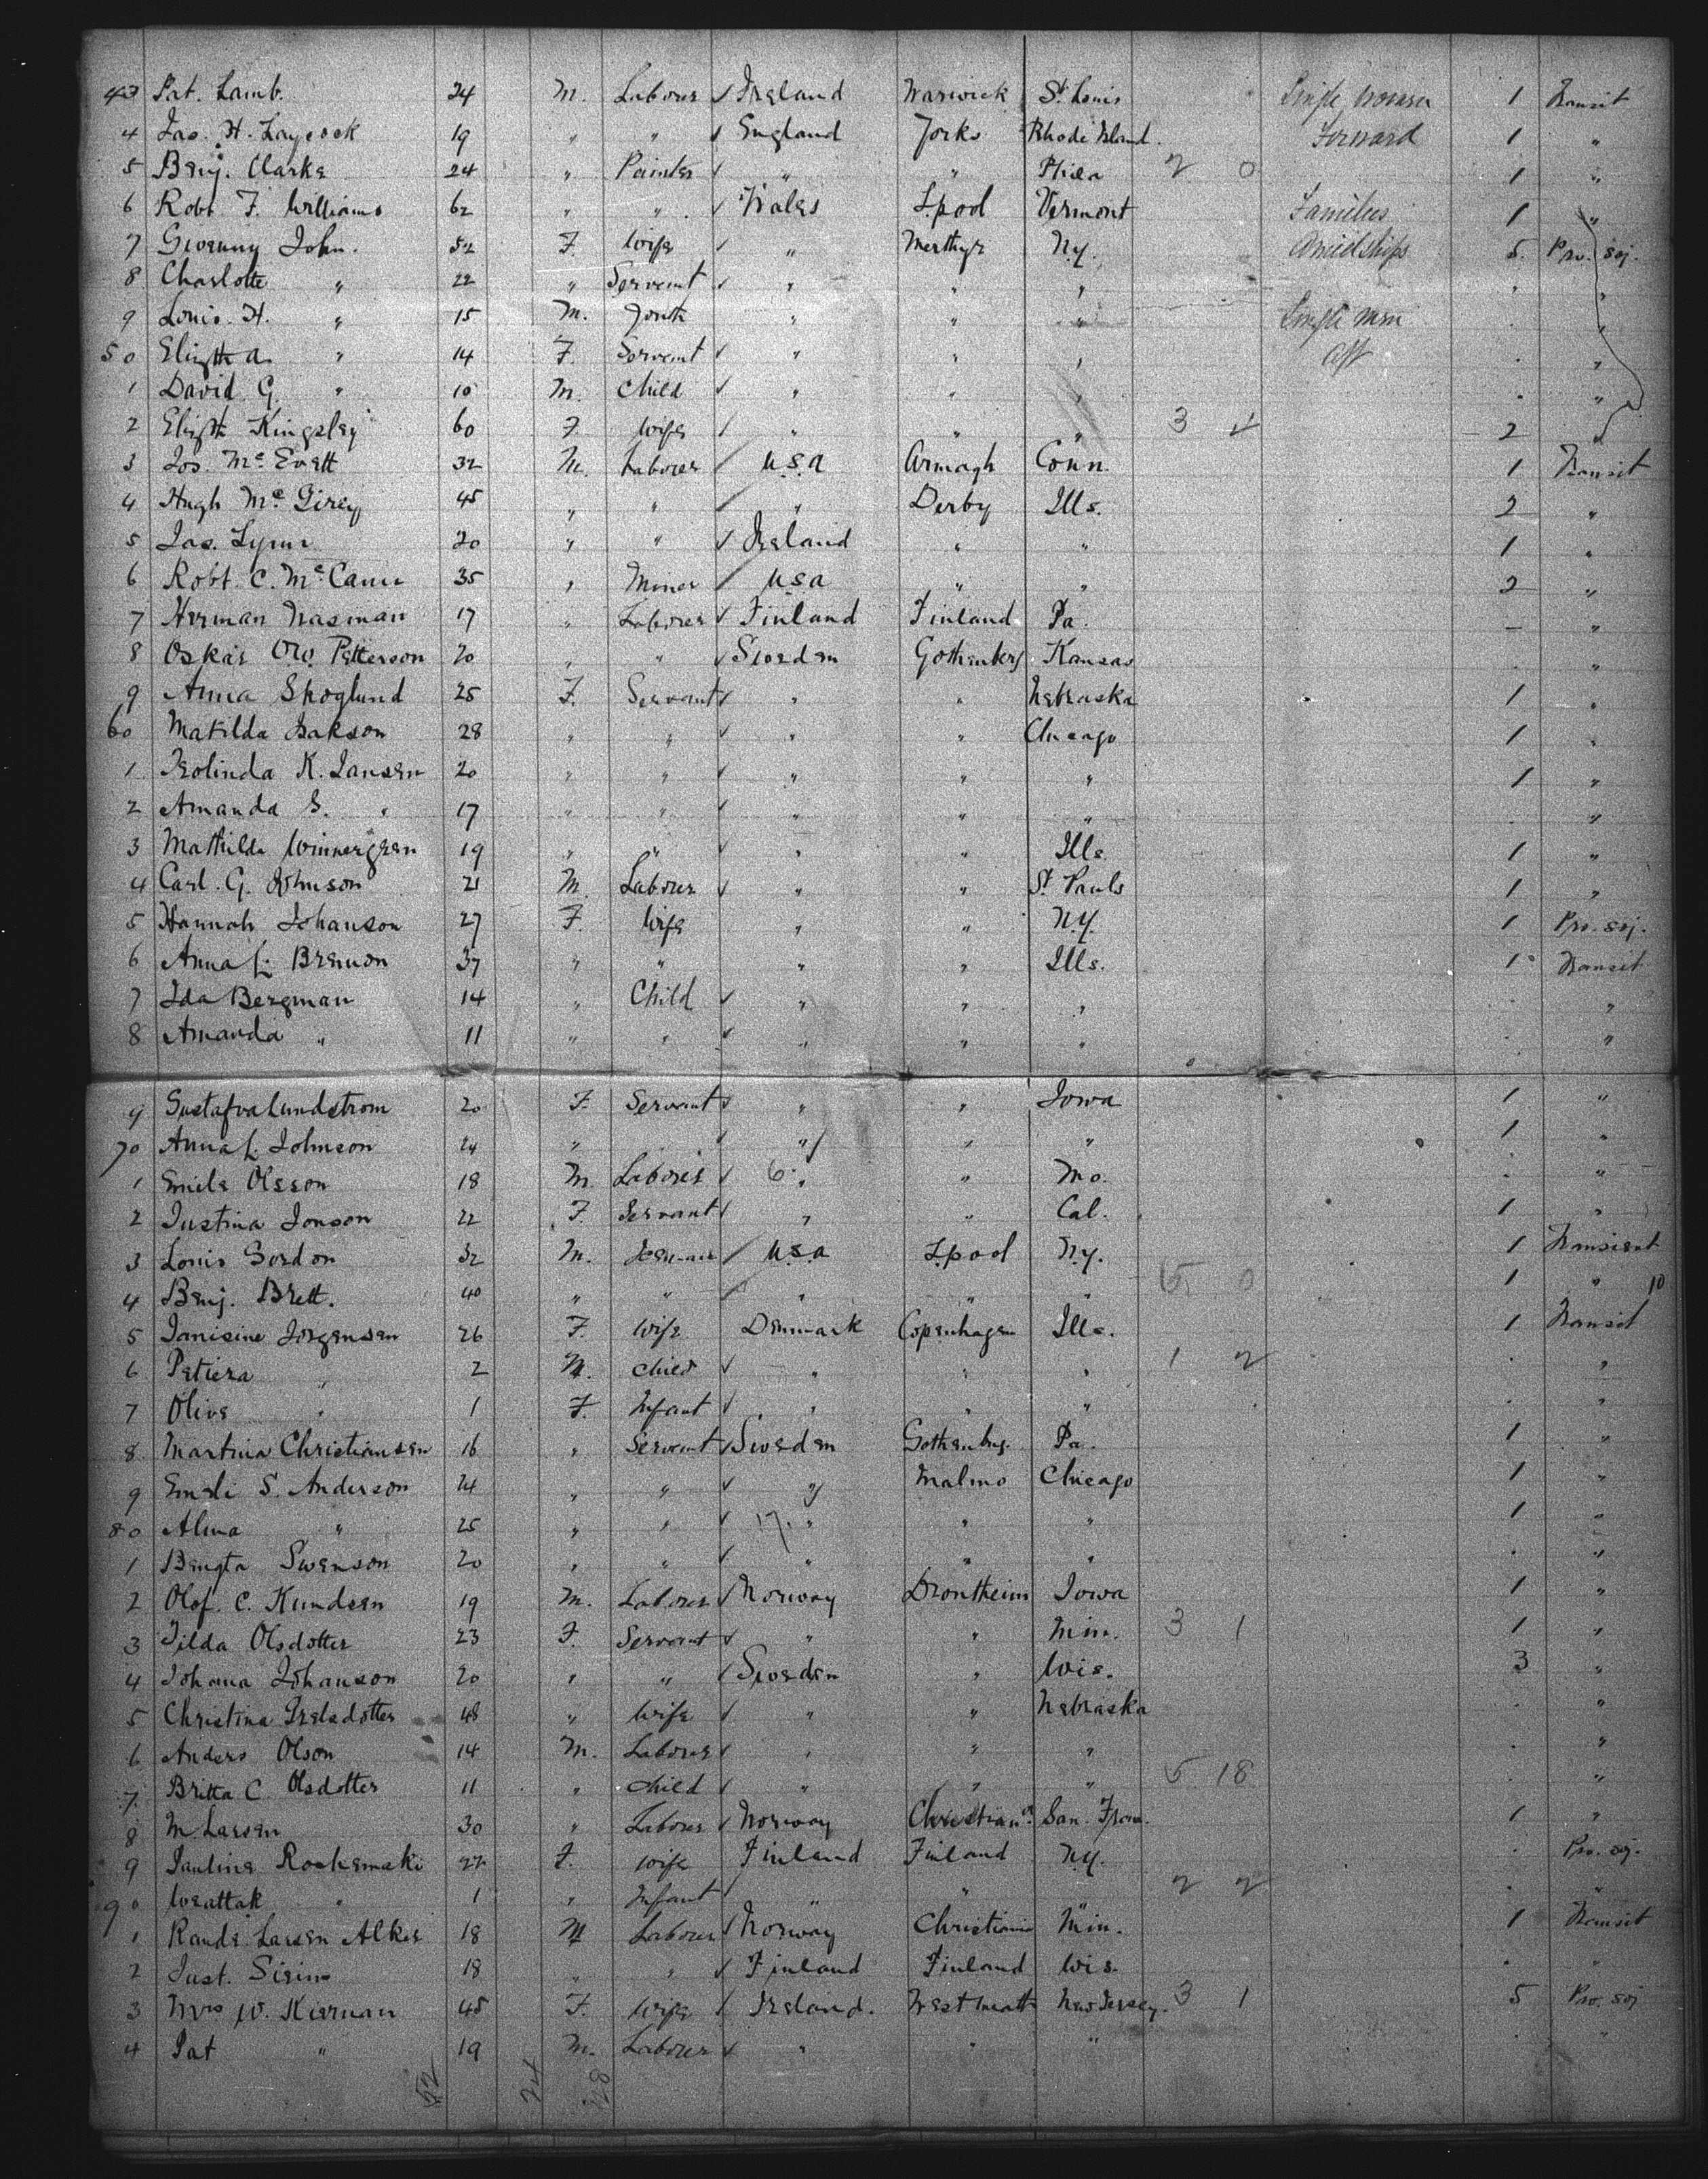 43 Pat. Lamb. 24 M. Laborer ✓ Ireland Warwick St. Louis Single women 1 Transit
4 Jas. H. Laycock 19 " " ✓ England Yorks Rhode Island. Forward 1 "
5 Benj. Clarke 24 " Painter ✓ " " Phila 2 0 1 "
6 Robt. F. Williams 62 " " ✓ Wales L.pool Vermont Families 1 "
7 Gwenny John. 52 F. Wife ✓ " Merthyr N.Y. Amidships 5. Pro. soj.
8 Charlotte " 22 " Servant ✓ " " " . "
9 Louis. H. " 15 M. Youth " " " Single men . "
50 Elizth a. " 14 F. Servant ✓ " " " aft . "
1 David G. " 10 M. Child ✓ " " " . "
2 Elizth Kingsley 60 F. Wife / " " " 3 4 2 "
3 Jos. Mc Evett 32 M. Laborer / U.S.A Armagh Conn. 1 Transit
4 Hugh Mc 45 " " / " Derby Ills. 2 "
5 Jas. Lynn 20 " " ✓ Ireland " " 1 "
6 Robt. C. McCann 35 " Miner / U.S.A " " 2 "
7 Herman Nasman 17 " Laborer ✓ Finland Finland Pa. – "
8 Oskar Petterson 20 " " ✓ Sweden Gothenberg Kansas . "
9 Anna Skoglund 25 F. Servant ✓ " " Nebraska 1 "
60 Matilda Isakson 28 " " ✓ " " Chicago 1 "
1 K. Jansen 20 " " ✓ " " " 1 "
2 Amanda S. " 17 " " ✓ " " " "
3 Mathilda Winnergren 19 " " ✓ " " Ills. 1 "
4 Carl. G. Johnson 21 M. Laborer ✓ " " St. Pauls 1 "
5 Hannah Johanson 27 F. Wife " " N.Y. 1 Pro. soj.
6 Anna L. 37 " " " " Ills. 1 Transit
7 Ida Bergman 14 " Child ✓ " " " . "
8 Amanda " 11 " " ✓ " " " . "
9 Gustafva Lundstrom 20 F. Servant ✓ " " Iowa 1 "
70 Anna L. Johnson 24 " ✓ " " " 1 "
1 Olsson 18 M. Laborer ✓ 6. " " Mo. . "
2 Justina Jonson 22 F. Servant ✓ " " Cal. 1 "
3 Louis Gordon 32 M. / U.S.A L.pool N.Y. 1 Transient
4 Benj. Brett. 40 " " / " " " 5 0 1 " 10
5 Jansine Jorgensen 26 F. Wife Denmark Copenhagen Ills. 1 Transit
6 " 2 M. Child ✓ " " " 1 2 . "
7 Olive " 1 F. Infant ✓ " " " . "
8 Martina Christiansen 16 " Servant ✓ Sweden Gothenbrg. Pa. 1 "
9 S. Anderson 24 " " ✓ " Malmo Chicago 1 "
80 Alma " 25 " " ✓ 17. " " " 1 "
1 Bengta Swenson 20 " " ✓ " " " . "
2 Olof. C. Kundsen 19 M. Laborer ✓ Norway Drontheim Iowa 1 "
3 Tilda Olsdotter 23 F. Servant ✓ " " Min. 3 1 1 "
4 Johana Johanson 20 " " ✓ Sweden " Wis. 3 "
5 Christina 48 " Wife ✓ " " Nebraska . "
6 Anders Olson 14 M. Laborer ✓ " " " . "
7. Britta C. Olsdotter 11 " Child ✓ " " " 5 18 . "
8 M. Larsen 30 " Laborer ✓ Norway Christiana San. Fran. 1 "
9 Pauline 22 F. Wife Finland Finland N.Y. . Pro. soj.
90 " 1 " Infant ✓ " " " 2 2 . "
1 Larsen 18 M Laborer ✓ Norway Christiania Min. 1 Transit
2 Just. 18 " " ✓ Finland Finland Wis. . "
3 Mrs W. Kiernan 45 F. Wife / Ireland. Westmeath New Jersey. 3 1 5 Pro. soj
4 Pat " 19 M. Laborer ✓ " " " . "
52 24 28